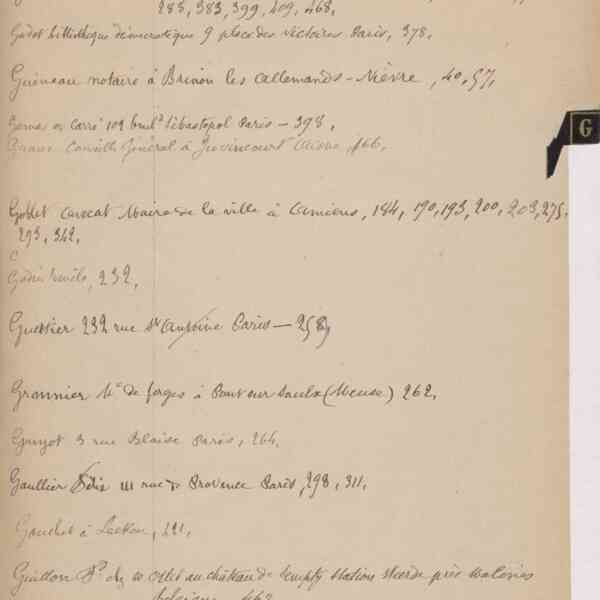 285, 383, 399, 409, 468,
Godet bibliothèque démocratique 9 place des Victoires Paris, 378,
Guéneau notaire à Brinon les allemands - Nièvre, 40, 57,
et Carré 109 bould Sébastopol Paris — 398,
Conseiller Général à Juvincourt Aisne, 166,
Goblet avocat Maire de la ville à Amiens, 184, 190, 193, 200, 203, 275,
293, 342,
G
Godin Emile, 232,
Guettier 232 rue St Antoine Paris — 258,
Grannier Me de forges à Pont sur Saulx (Meuse) 262,
Guyot 3 rue Blaise Paris, 264,
Gaullier 111 rue de Provence Paris, 298, 311,
Gauchet à
Guillon chez au château de station près Malines
belgique 462
G